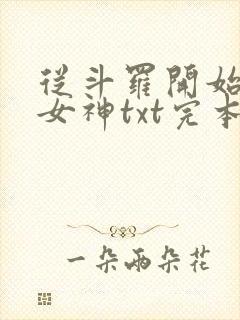 從斗羅開始
女神txt完本
一朵兩朵花